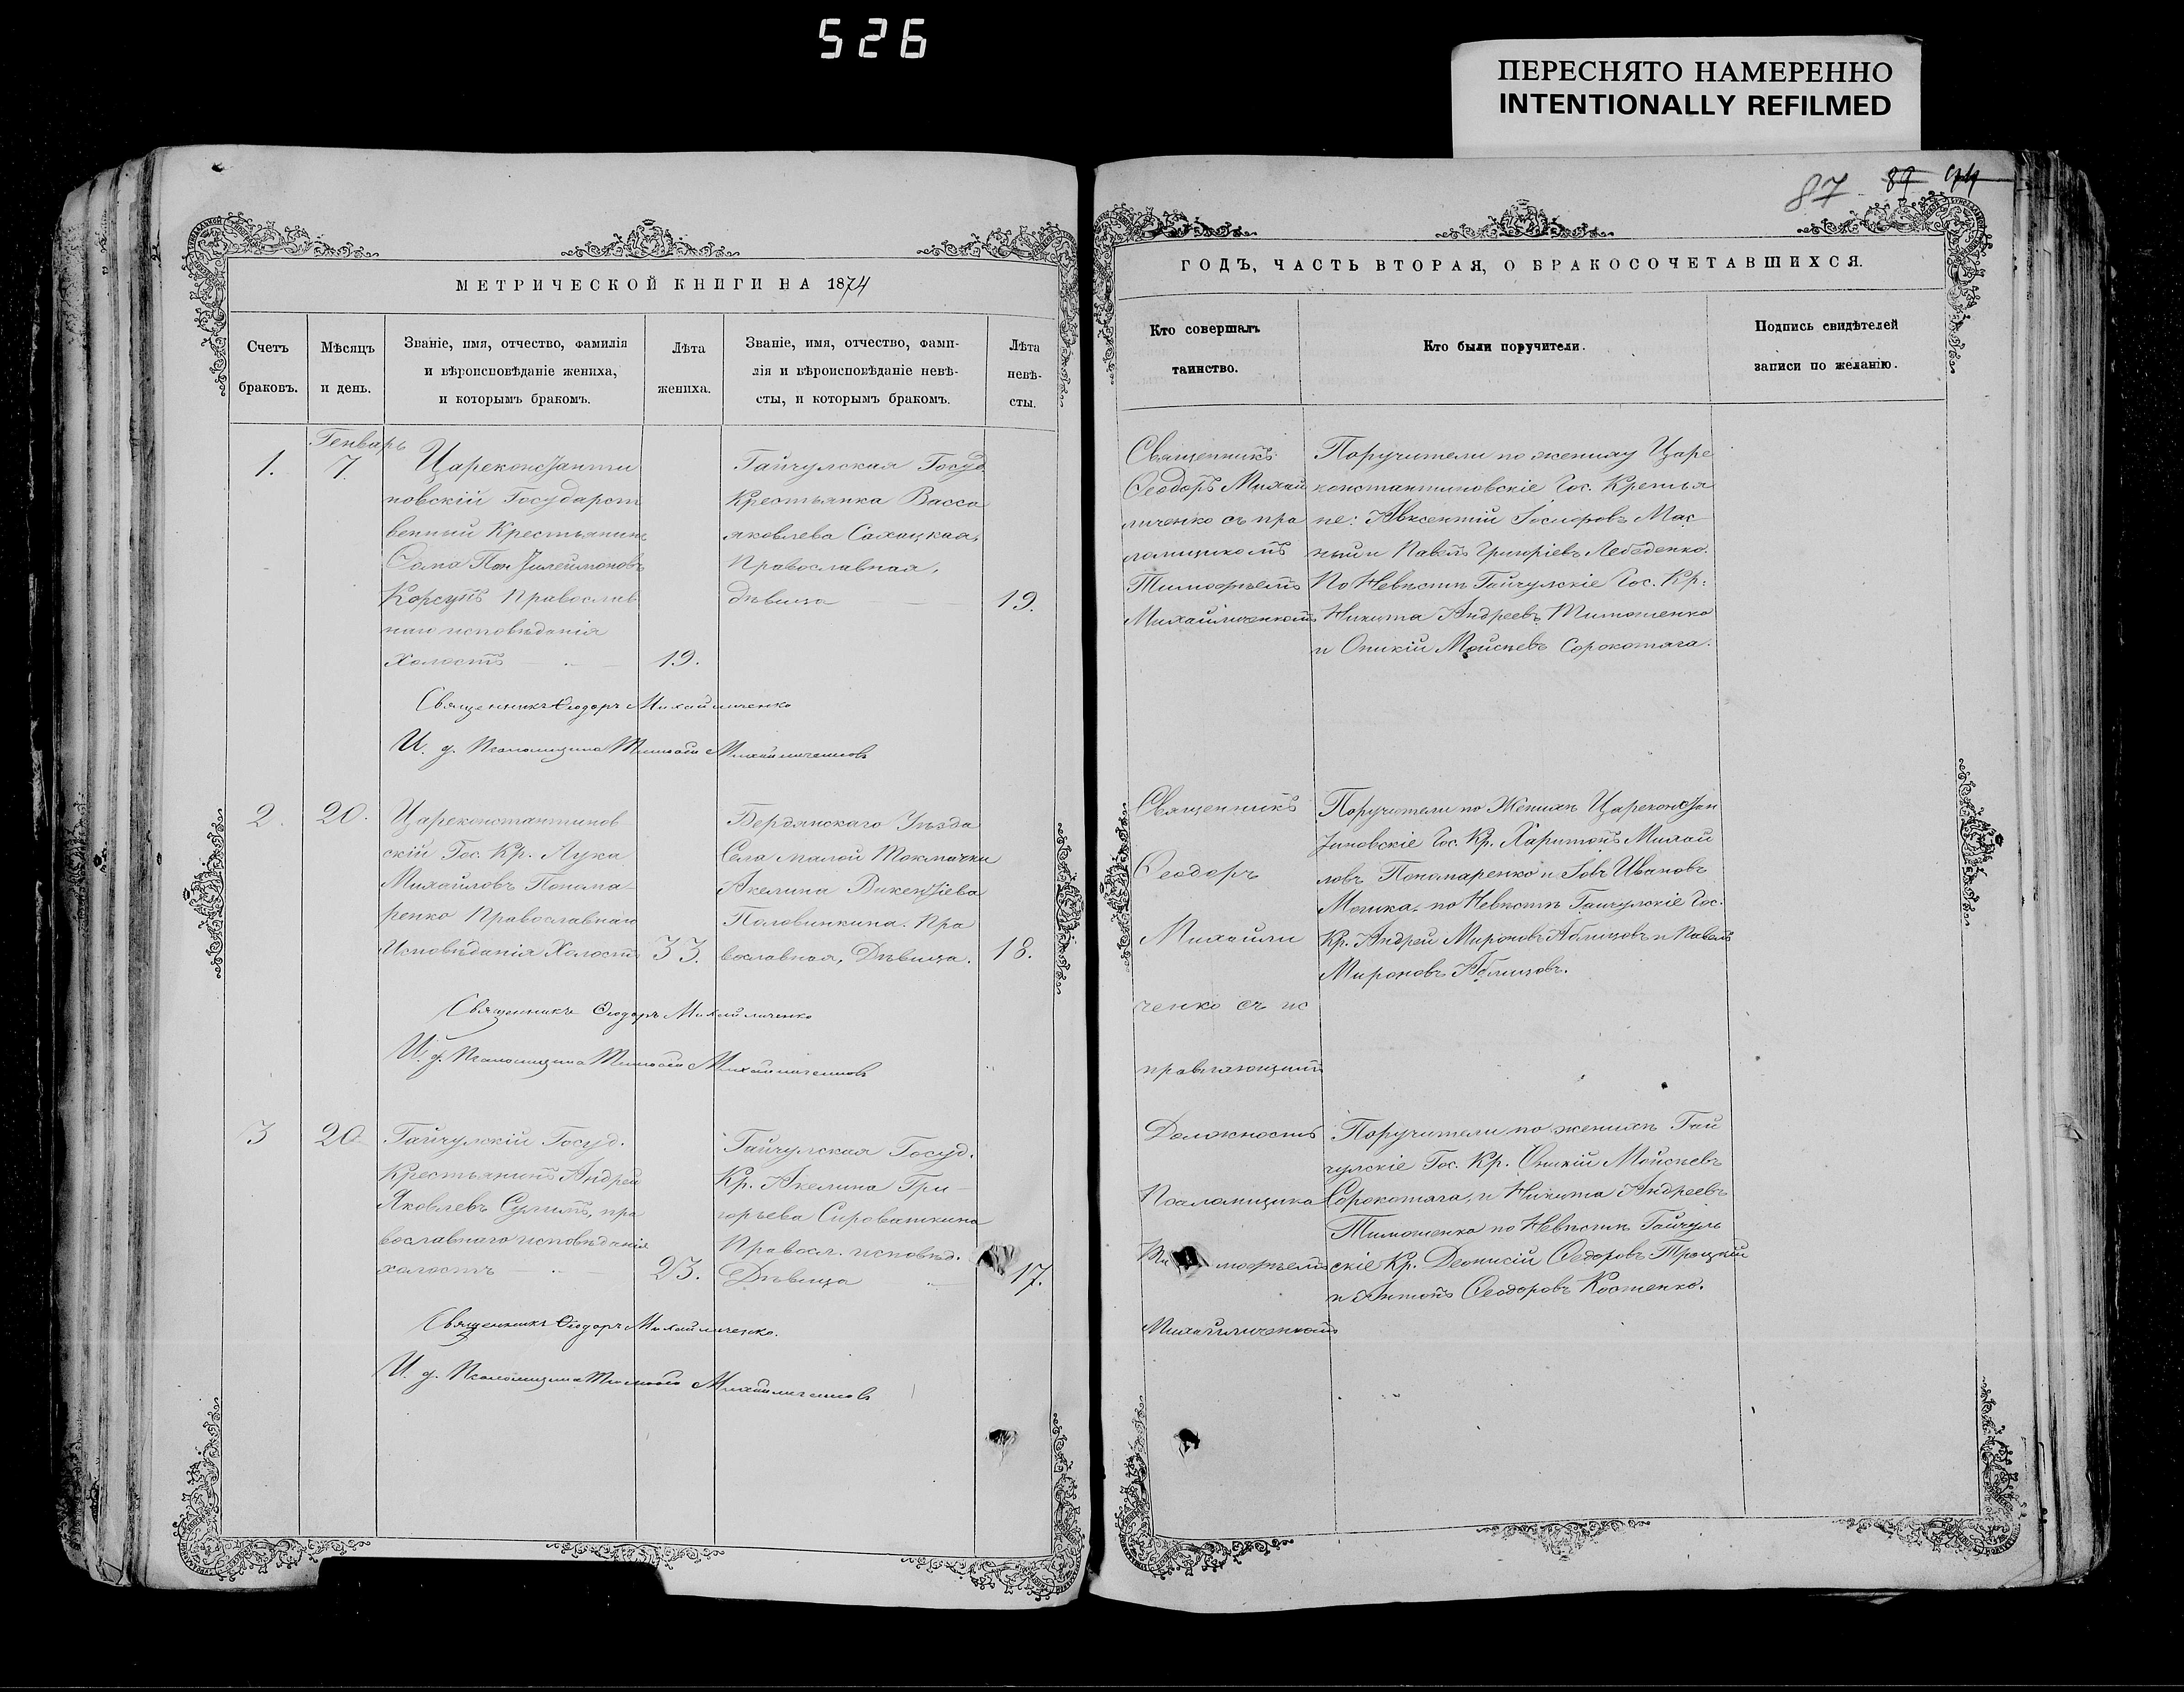 526
ПЕРЕСНЯТО НАМЕРЕННО
INTENTIONALLY REFILMED
87 89 94
МЕТРИЧЕСКОЙ КНИГИ НА 1874
Счетъ браковъ.
Мѣсяцъ и день.
Званіе, имя, отчество, фамилія
и вѣроисповѣданіе жениха,
и которымъ бракомъ.
Лѣта
жениха.
Званіе, имя, отчество, фами-
лія и вѣроисповѣданіе невѣ-
сты, и которымъ бракомъ.
Лѣта
невѣ-
сты.
Генварь
1.
7.
Цареконстанти
новскій Государст
венный Крестьянинъ
Корсунъ Православ
наго исповѣданія
Холостъ
19.
Гайчулская Госуд
Крестьянка Васса
Яковлева Сахацкая,
Православная,
дѣвица
19.
Священникъ Ѳеодоръ Михайличенко
И. д. Псаломщика Тимофей Михайличенковъ
2.
20.
Цареконстантинов
скій Гос. Кр. Лука
Михайловъ Понома
ренко Православнаго
Исповѣданія Холостъ
33.
Бердянскаго Уѣзда
Села малой Токмачки
Акелина Викентіева
Половинкина. Пра
вославная, Дѣвица.
18.
Священникъ Ѳеодоръ Михайличенко
И. д. Псаломщика Тимофей Михайличенковъ
3
20
Гайчулскій Госуд.
Крестьянинъ Андрей
Яковлевъ Сулимъ, пра
вославнаго исповѣданія
холостъ
23.
Гайчулская Госуд.
Кр. Акелина Гри
горьева Сироваткина
Правосл. исповѣд.
Дѣвица
17.
Священникъ Ѳеодоръ Михайличенко.
И. д. Псаломщика Тимофей Михайличенковъ
ГОДЪ, ЧАСТЬ ВТОРАЯ, О БРАКОСОЧЕТАВШИХСЯ.
Кто совершалъ
таинство.
Кто были поручители.
Подпись свидѣтелей
записи по желанію.
Священникъ
Ѳеодоръ Михай
личенко съ пса
ломщикомъ
Тимофѣемъ
Михайличенкомъ
Поручители по жениху Царе
константиновскіе Гос. Крестья
не: Авксентій Мас
ный и Павелъ Григоріевъ Лебеденко.
По Невѣстѣ Гайчулскіе Гос. Кр:
Никита Андреевъ Тимошенко
и Оникій Мойсѣевъ Сорокотяга.
Священникъ
Ѳеодоръ
Михайли
ченко съ ис
правляющимъ
Должность
Псаломщика
Тимофѣемъ
Михайличенкомъ
Поручители по Женихѣ Цареконстан
тиновскіе Гос. Кр. Харитонъ Михай
ловъ Пономаренко и Іовъ Ивановъ
по Невѣстѣ Гайчулскіе Гос.
Кр. Андрей Мироновъ Аблицовъ и Павелъ
Мироновъ Аблицовъ.
Поручители по женихѣ Гай
чулскіе Гос. Кр. Оникій Мойсѣевъ
Сорокотяга, и Никита Андреевъ
Тимошенко по Невѣстѣ Гайчул
скіе Кр. Деонисій Ѳедоровъ Троцкій
и Антонъ Ѳеодоровъ Костенко.